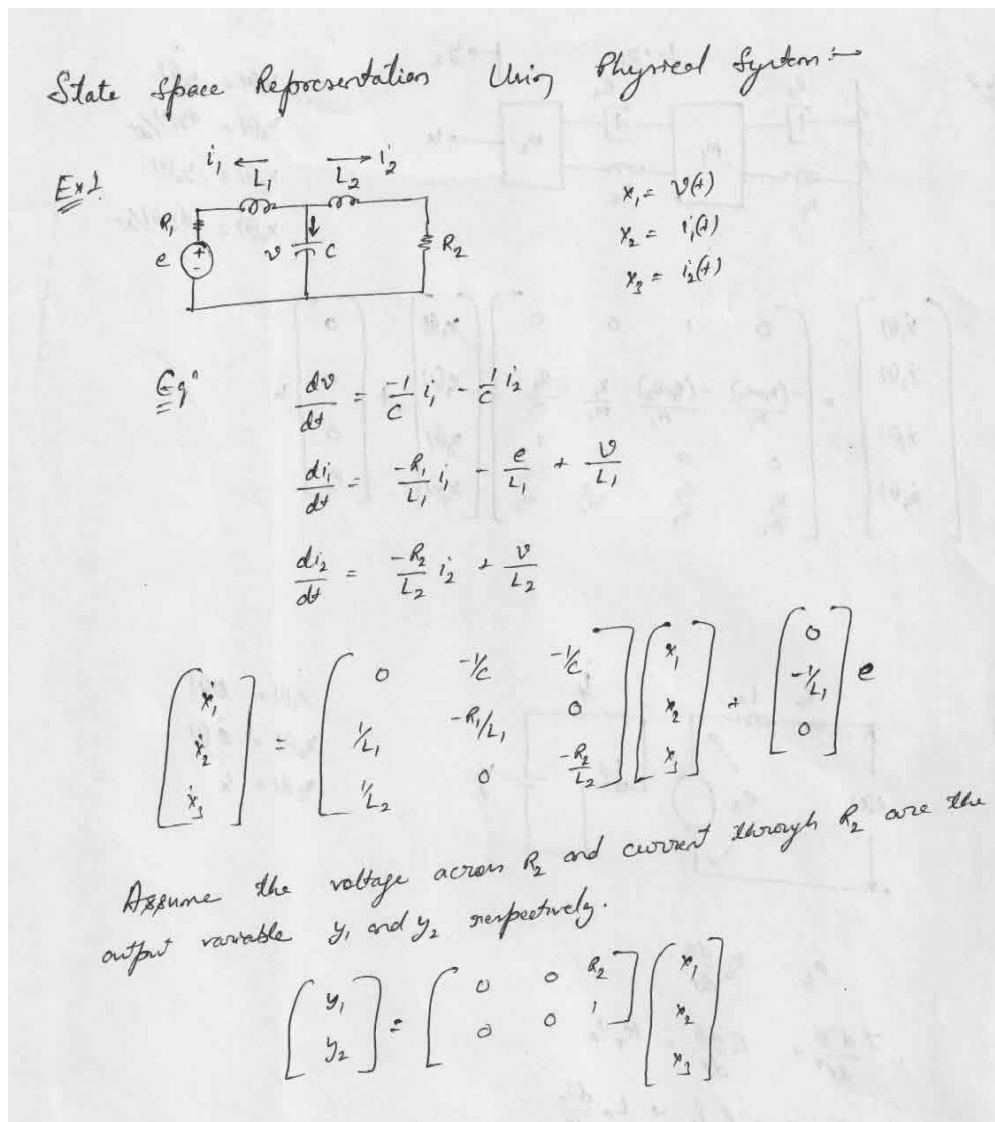 State Space Representation Using Physical System :-
Ex 1.
i₁ ← → i₂
L₁ L₂
R₁
e + - v C R₂
x₁ = v(t)
x₂ = i₁(t)
x₃ = i₂(t)
Eqⁿ dv/dt = -1/C i₁ - 1/C i₂
di₁/dt = -R₁/L₁ i₁ - e/L₁ + v/L₁
di₂/dt = -R₂/L₂ i₂ + v/L₂
[ẋ₁ ẋ₂ ẋ₃] = [0 -1/C -1/C; 1/L₁ -R₁/L₁ 0; 1/L₂ 0 -R₂/L₂] [x₁ x₂ x₃] + [0 -1/L₁ 0] e
Assume the voltage across R₂ and current through R₂ are the
output variable y₁ and y₂ respectively.
[y₁ y₂] = [0 0 R₂; 0 0 1] [x₁ x₂ x₃]